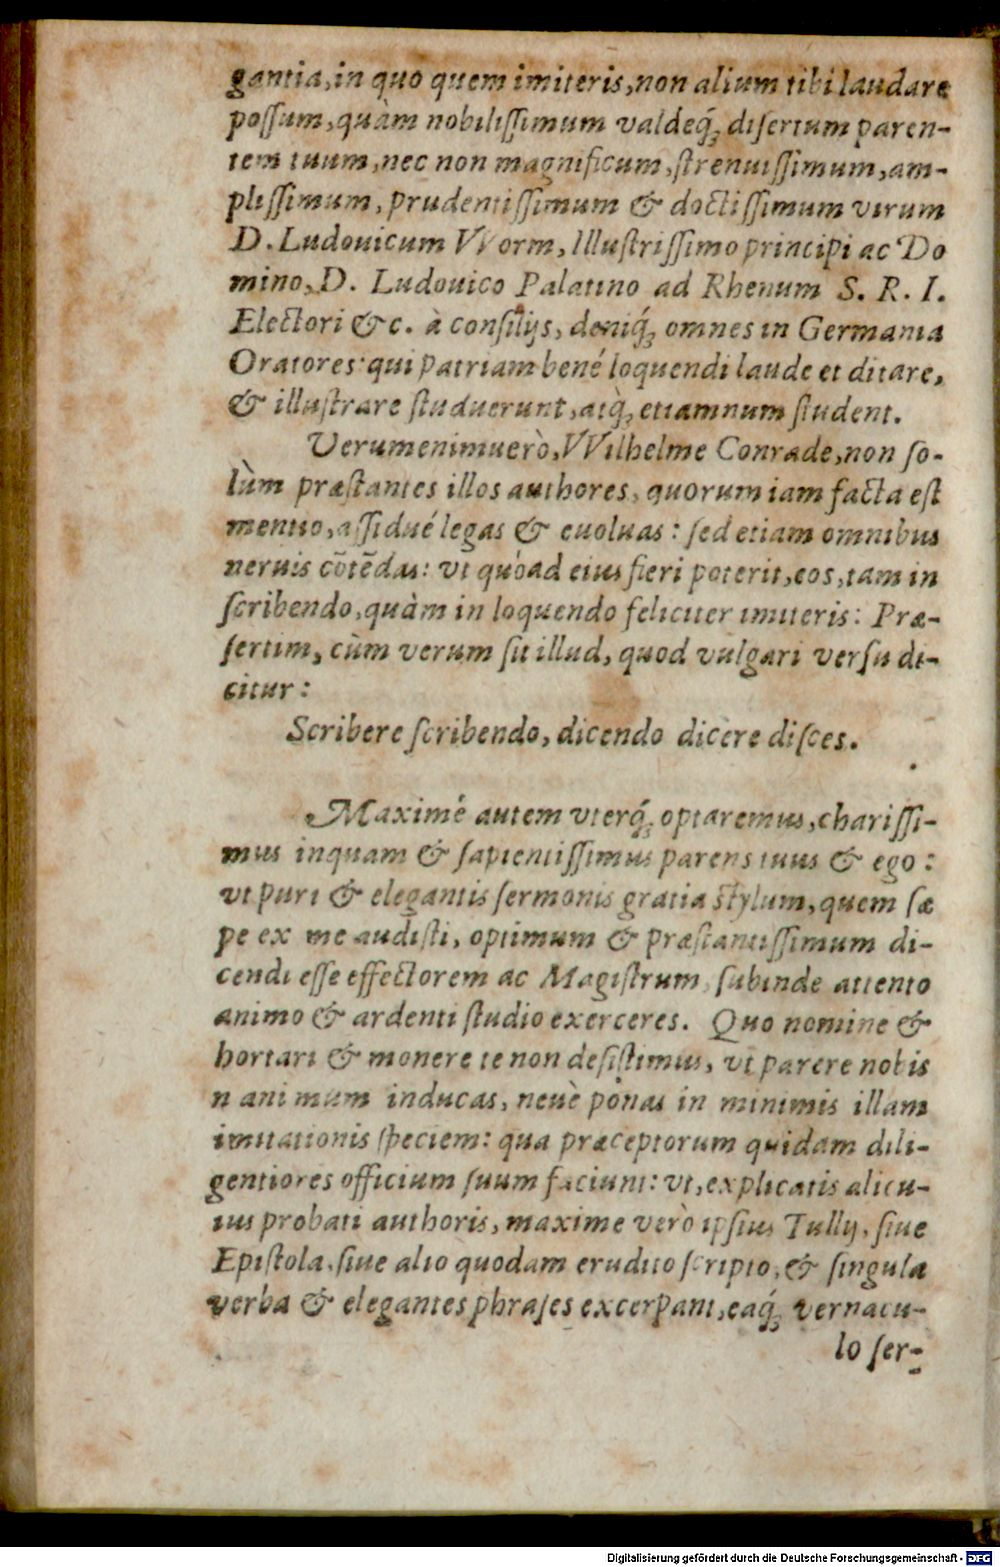 gantia, in quo quem imiteris, non alium tibi laudare
poſſum, quàm nobiliſſimum valdeq́; diſertum paren-
tem tuum, nec non magnificum, ſtrenuiſſimum, am-
pliſſimum, prudentiſſimum & doctiſſimum virum
D. Ludouicum VVorm, Illuſtriſſimo principi ac Do
mino, D. Ludouico Palatino ad Rhenum S. R. I.
Electori &c. à conſilijs, deniq́; omnes in Germania
Oratores: qui patriam bené loquendi laude et ditare,
& illuſtrare ſtuduerunt, atq́; etiamnum ſtudent.
Verumenimuerò, VVilhelme Conrade, non ſo-
lùm præſtantes illos authores, quorum iam facta eſt
mentio, aſſidué legas & euoluas: ſed etiam omnibus
neruis cōtēdas: vt quóad eius fieri poterit, eos, tam in
ſcribendo, quàm in loquendo feliciter imiteris: Præ-
ſertim, cùm verum ſit illud, quod vulgari verſu di-
citur:
Scribere ſcribendo, dicendo dicere diſces.
Maximé autem vterq́; optaremus, chariſſi-
mus inquam & ſapientiſſimus parens tuus & ego:
vt puri & elegantis ſermonis gratia ſtylum, quem ſæ
pe ex me audiſti, optimum & præſtantiſſimum di-
cendi eſſe effectorem ac Magiſtrum, ſubinde attento
animo & ardenti ſtudio exerceres. Quo nomine &
hortari & monere te non deſiſtimus, vt parere nobis
n animum inducas, neuè ponas in minimis illam
imitationis ſpeciem: qua præceptorum quidam dili-
gentiores officium ſuum faciunt: vt, explicatis alicu-
ius probati authoris, maxime verò ipſius Tullij, ſiue
Epiſtola, ſiue alio quodam erudito ſcripto, & ſingula
verba & elegantes phraſes excerpant, eaq́; vernacu-
lo ſer-
Digitalisierung gefördert durch die Deutsche Forschungsgemeinschaft - DFG